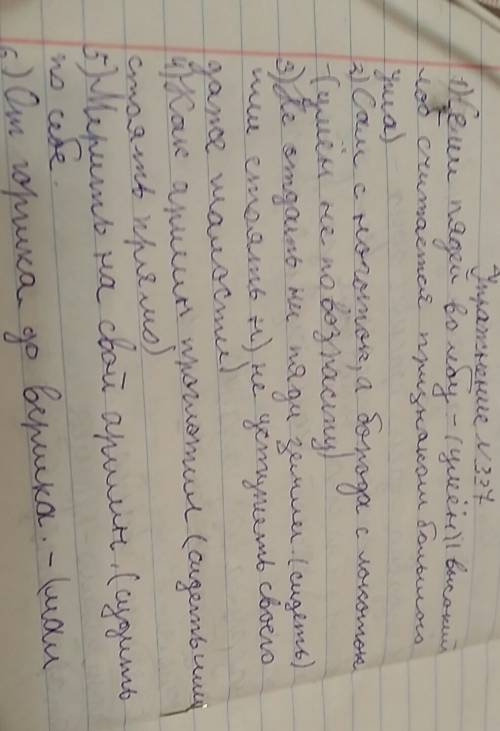 Упражнение №327
1) Семи пядей во лбу - (умён) (высокий
лоб считается признаком большого
ума)
2) Сам с ноготок, а борода с локоток
- (умён не по возрасту)
3) Не отдать ни пяди земли. (сидеть)
или стоять н) не уступать своего
даже малости)
4) Как аршин проглотил (сидеть или
стоять прямо)
5) Мерить на свой аршин. (судить
по себе.
6) От горшка до вершка. - (мал